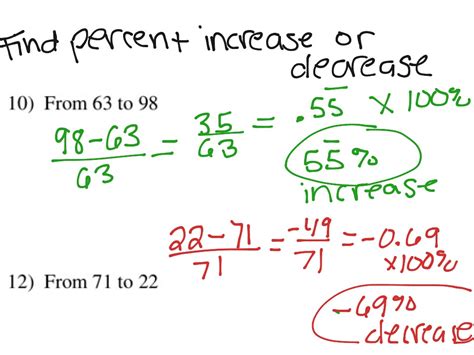 Find percent increase or
decrease
10) From 63 to 98
98-63/63 = 35/63 = .55̅ x 100%
55̅%
increase
22-71/71 = -49/71 = -0.69
x100%
12) From 71 to 22
-69%
decrease